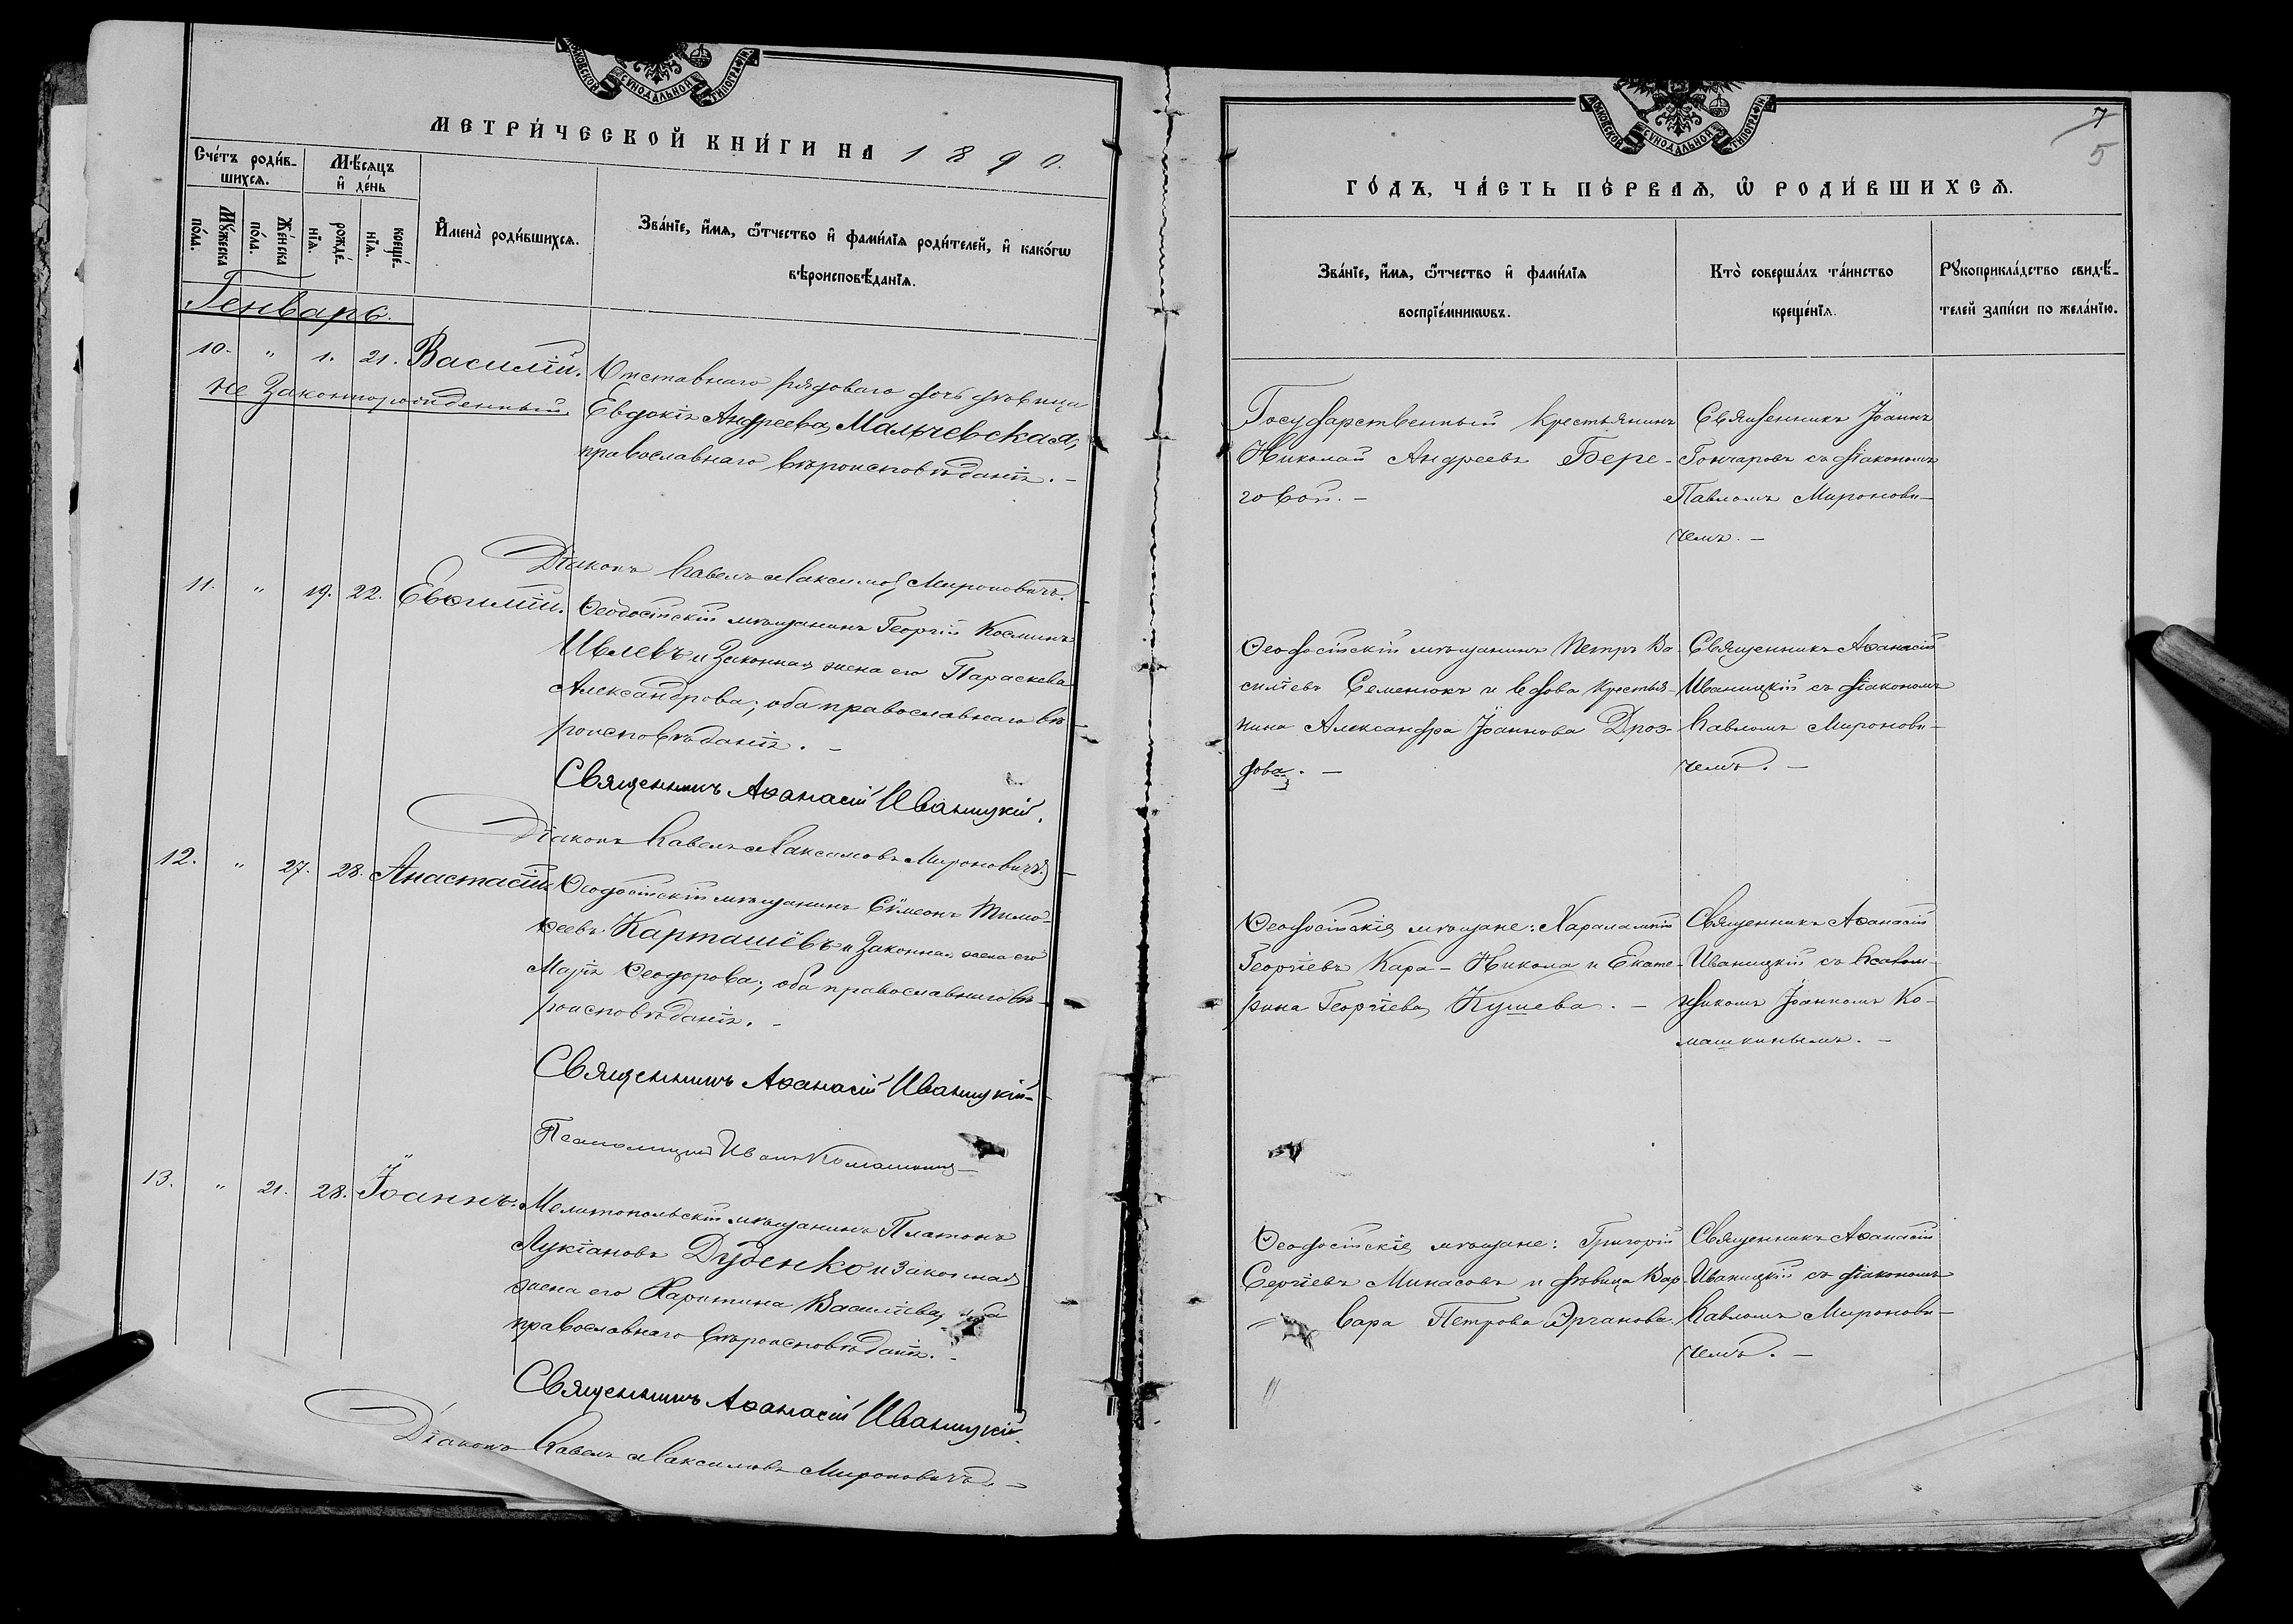 МОСКОВСКОЙ СѴНОДАЛЬНОЙ ТИПОГРАФІИ
МЕТРИ́ЧЕСКОЙ КНИ́ГИ НА 1890.
Сче́тъ роди́вшихсѧ.
Мꙋ́жеска по́ла.
Же́нска по́ла.
Мѣ́сѧцъ и҆ де́нь
рожде́нїѧ.
креще́нїѧ.
И҆мена̀ роди́вшихсѧ.
Зва́нїе, и҆́мѧ, ѻ҆́тчество и҆ фами́лїѧ роди́телей, и҆ како́гѡ
вѣроисповѣ́данїѧ.
Генварь.
10. " 1. 21. Василій.
не законнорожденный
Отставнаго рядоваго дочь дѣвица
Евдокія Андреева Мальчевская,
православнаго вѣроисповѣданія. –
Діаконъ Павелъ Максимовъ Мироновичъ.
11. " 19. 22. Евѳимій.
Ѳеодосійскій мѣщанинъ Георгій Косминъ
Ивлевъ и законная жена его Параскева
Александрова; оба православнаго вѣ-
роисповѣданія. –
Священникъ Аѳанасій Иваницкій.
Діаконъ Павелъ Максимовъ Мироновичъ
12. " 27. 28. Анастасій
Ѳеодосійскій мѣщанинъ Сѵмеонъ Тимо-
ѳеевъ Карташёвъ и законная жена его
Марія Ѳеодорова; оба православнаго вѣ-
роисповѣданія. –
Священникъ Аѳанасій Иваницкій
Псаломщикъ Иванъ Комашкинъ
13. " 21. 28. Іоаннъ.
Мелитопольскій мѣщанинъ Платонъ
Лукіановъ Дуденко и законная
жена его Харитина Васильева, оба
православнаго вѣроисповѣданія. –
Священникъ Аѳанасій Иваницкій.
Діаконъ Павелъ Максимовъ Мироновичъ. –
МОСКОВСКОЙ СѴНОДАЛЬНОЙ ТИПОГРАФІИ
7
5
ГО́ДЪ, ЧА́СТЬ ПЕ́РВАѦ, Ѡ҆ РОДИ́ВШИХСѦ.
Зва́нїе, и҆́мѧ, ѻ҆́тчество и҆ фами́лїѧ
воспрїе́мникѡвъ.
Кто̀ соверша́лъ та́инство
креще́нїѧ.
Рꙋкоприкла́дство свидѣ́-
телей за́писи по жела́нїю.
Государственный крестьянинъ
Николай Андреевъ Бере-
говой. –
Священникъ Іоаннъ
Гончаровъ съ діакономъ
Павломъ Миронови-
чемъ. –
Ѳеодосійскій мѣщанинъ Петръ Ва-
силіевъ Семенюкъ и вдова крестья-
нина Александра Іоаннова Дроз-
дова. –
Священникъ Аѳанасій
Иваницкій съ діакономъ
Павломъ Миронови-
чемъ. –
Ѳеодосійскіе мѣщане: Харалампій
Георгіевъ Кара-Никола и Екате-
рина Георгіева Кушева. –
Священникъ Аѳанасій
Иваницкій съ псалом-
щикомъ Іоанномъ Ко-
машкинымъ. –
Ѳеодосійскіе мѣщане: Григорій
Сергіевъ Минасовъ и дѣвица Вар-
вара Петрова Эрганова.
Священникъ Аѳанасій
Иваницкій съ діакономъ
Павломъ Миронови-
чемъ. –